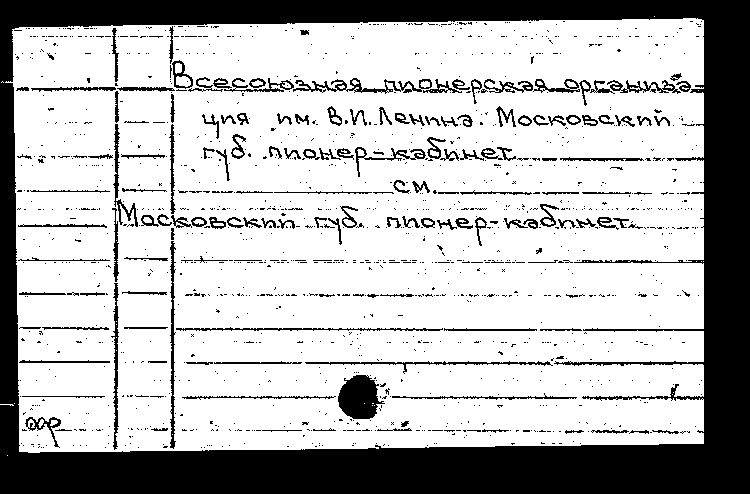 Всесоюзная пионерская организа-
ция им. В.И. Ленина. Московский
губ. пионер-кабинет
см.
Московский губ. пионер-кабинет.